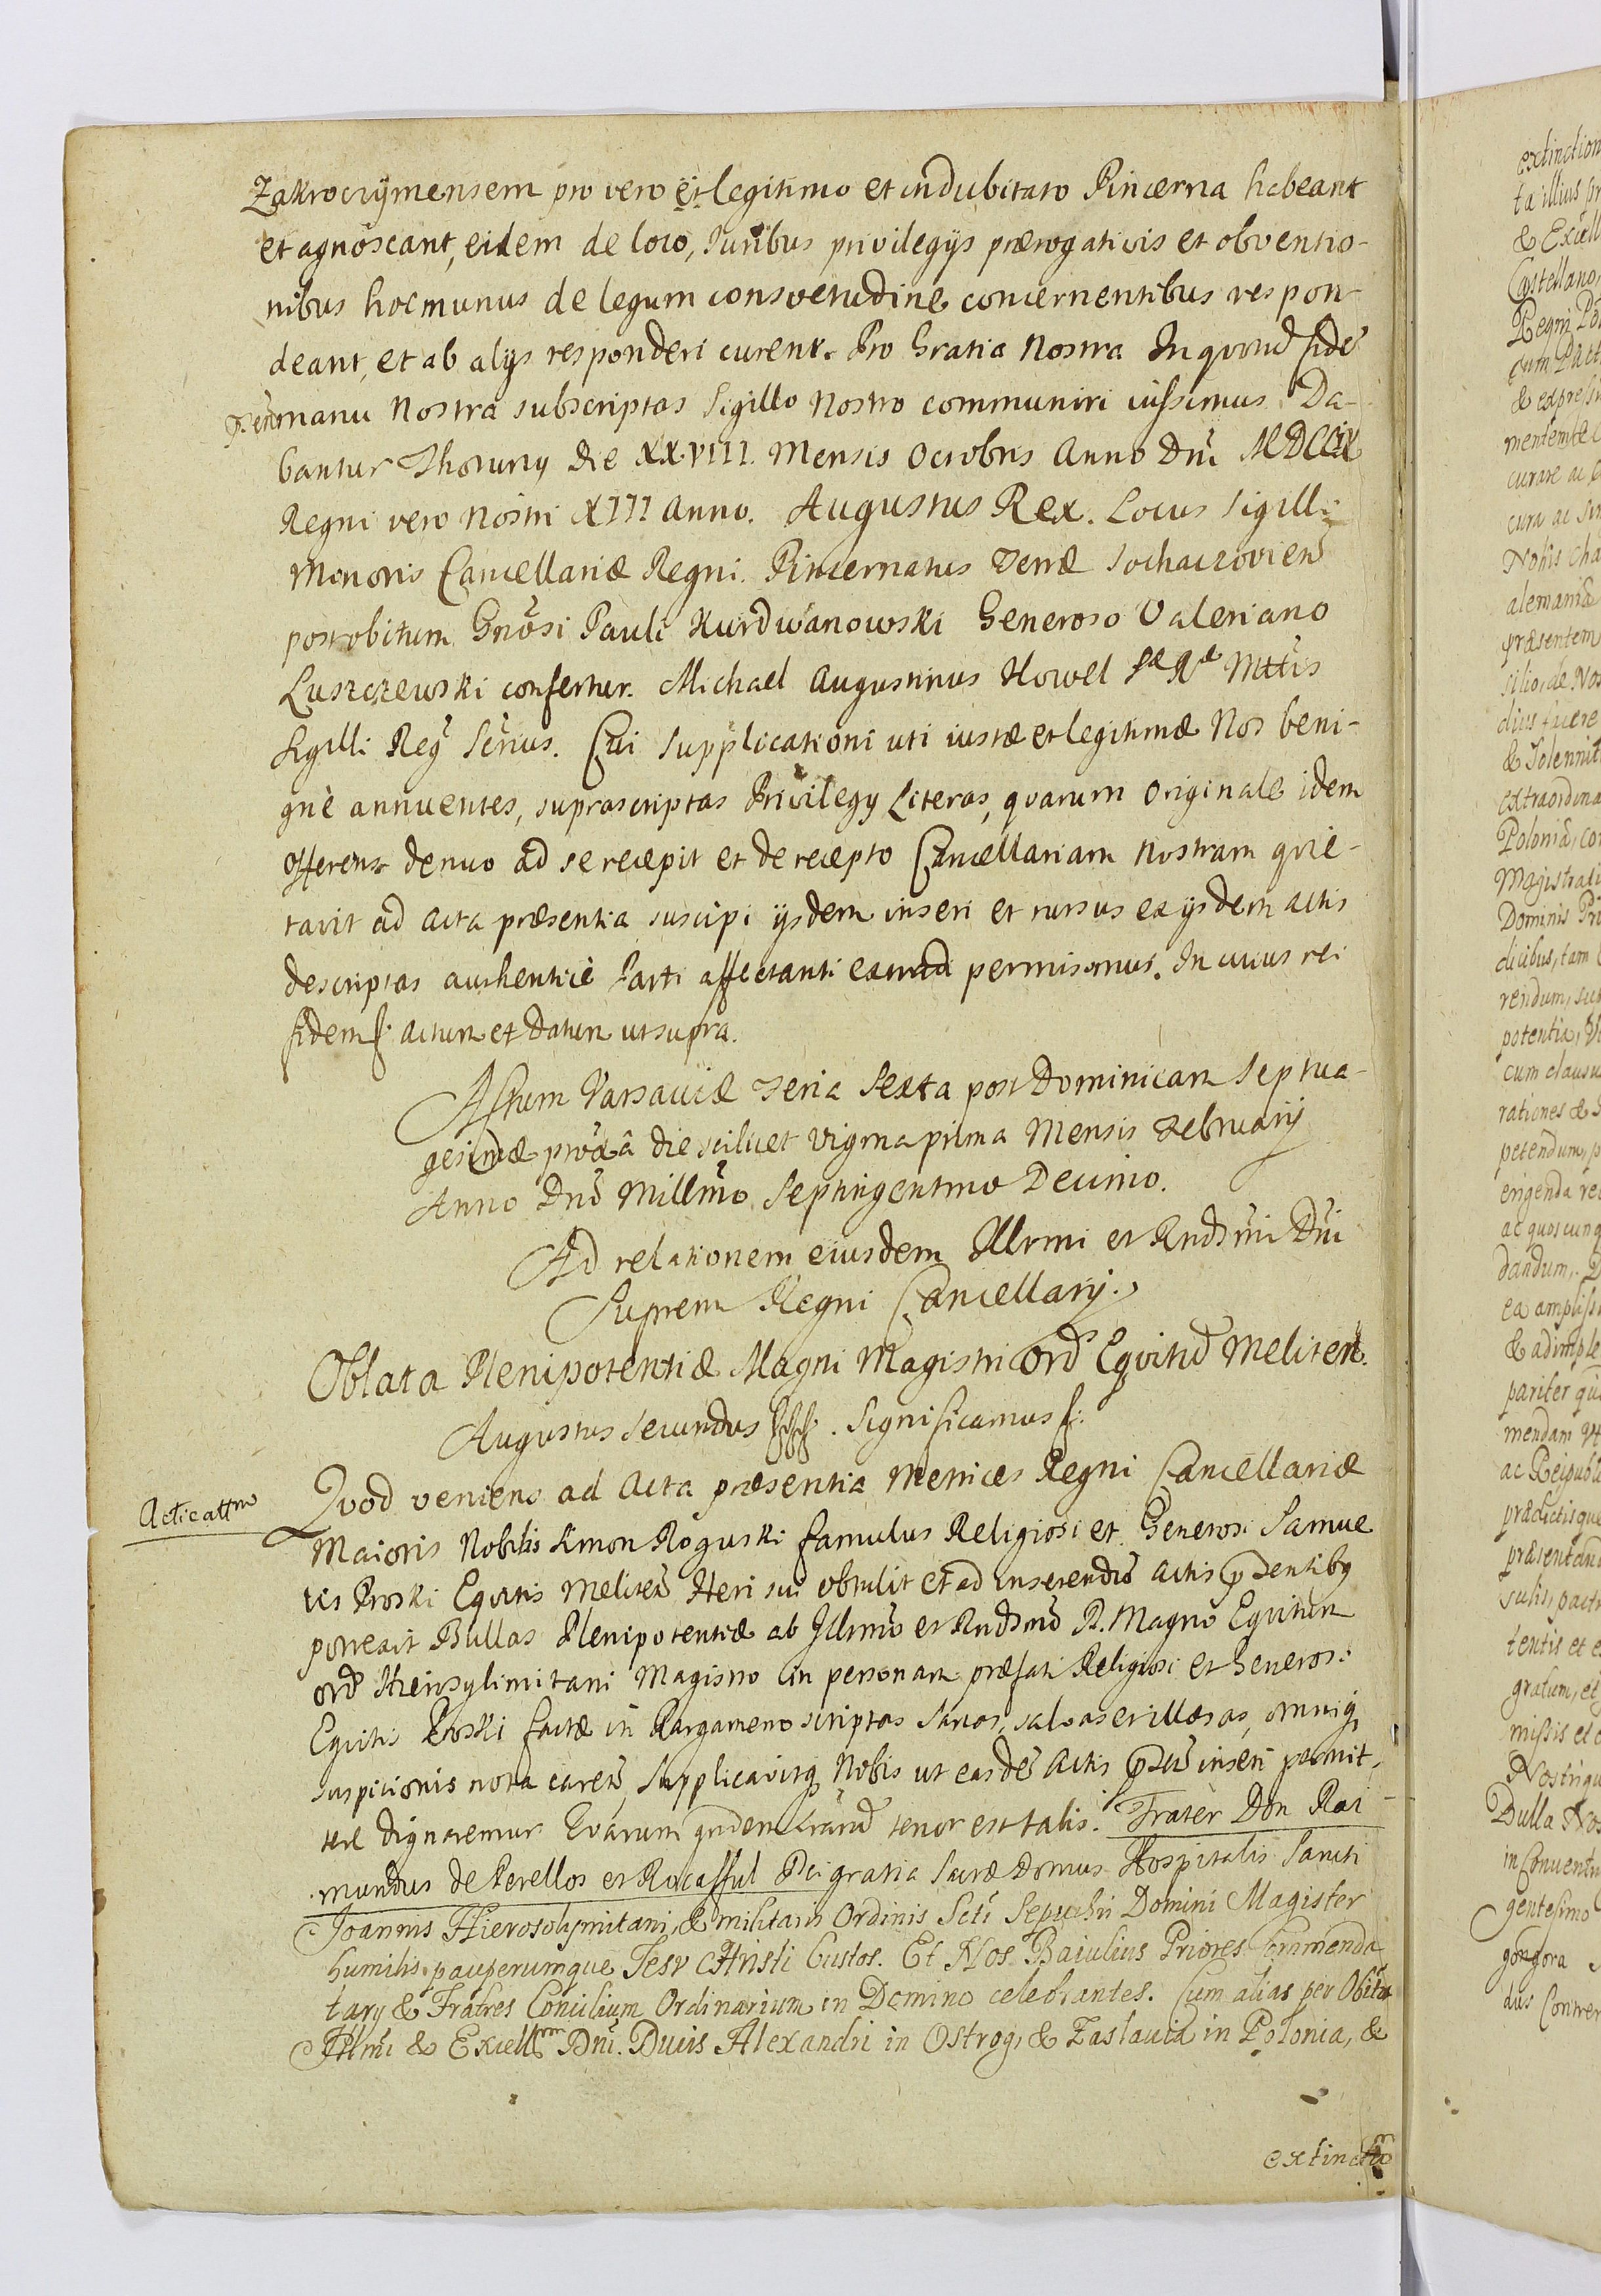 Zakroczymensem pro vero et legitimo et indubitato Pincerna habeant
et agnoscant, eidem de loco, Juribus privilegijs prærogativis et obventio-
nibus hoc munus de legum consvetudine concernentibus respon-
deant, et ab alijs responderi curent. Pro Gratia Nostra In quorũ fidẽ
manu Nostra subscriptas Sigillo Nostro communiri iussimus. Da-
bantur Thoruny die XXVIII. Mensis Octobris Anno Dni MDCCIX
Regni vero Nostri XIII anno. Augustus Rex. Locus Sigilli
Minoris Cancellariæ Regni. Pincernatus Terræ Sochaczovien
post obitum Gnosi Pauli Kurdwanowski Generoso Valeriano
Luszczewski confertur. Michael Augustinus Howel Sæ Ræ Mttis
Sigilli Reg Srius. Cui Supplicationi uti iustæ et legitimæ Nos beni-
gnè annuentes, suprascriptas Privilegy Literas, quarum Originale idem
Offerens denuo ad se recepit et de recepto Cancellariam Nostram quie-
tavit ad acta præsentia suscipi ijsdem inseri et rursus ex ijsdem actis
descriptas authenticè Parti affectanti permisimus. In cuius rei
fidem actum et Datum ut supra.
Actum Varsaviæ Feria Sexta post Dominicam Septua-
gesimæ proxâ die scilicet Vigma prima Mensis February
Anno Dnĩ Millmo Septingentmo Decimo.
Ad relationem eiusdem Illrmi et Rndsmi Dni
Supremi Regni Cancellarij.
Oblata Plenipotentiæ Magni Magistri Ord Equitũ Meliten.
Augustus Secundus. Significamus
Acticattno
Quod veniens ad Acta præsentia Metrices Regni Cancellariæ
Maioris Nobilis Simon Roguski famulus Religiosi et Generosi Samue
lis Proski Equitis Meliteñ Heri sui obtulit et ad inserendũ Actis pntibg
porrexit Bullas Plenipotentiæ ab Illrmo et Rndsmo D. Magno Equitum
ord Hierosylimitani Magistro in personam præfati Religiosi et Generosi
Equitis Proski factæ in Pargameno scriptas Sanas, salvas et illæsas, omniq,
suspicionis nota carẽtes, Supplicavitq Nobis ut easdẽ Actis inseri permit-
tere dignaremur Quarum quidem Lrarũ tenor est talis. Frater Don Rai
mundus de Perellos et Rocafful Dei gratia Sacræ Domus Hospitalis Sancti
Joannis Hierosolymitani, & militaris Ordinis Scti Sepulchri Domini Magister
humilis, pauperumque Jesv Christi Custos. Et Nos Baiulius Priores Commenda
tary & Fratres Concilium Ordinarium in Domino celebrantes. Cum alias per Obitũ
Illmi & Excellm Dni. Ducis Alexandri in Ostrog, & Zaslavia in Polonia, &